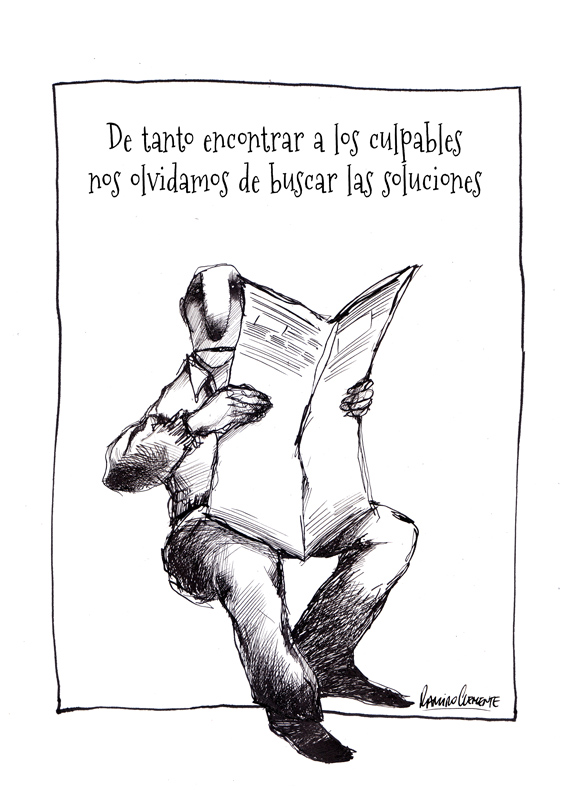 De tanto encontrar a los culpables
nos olvidamos de buscar las soluciones
Ramiro Clemente